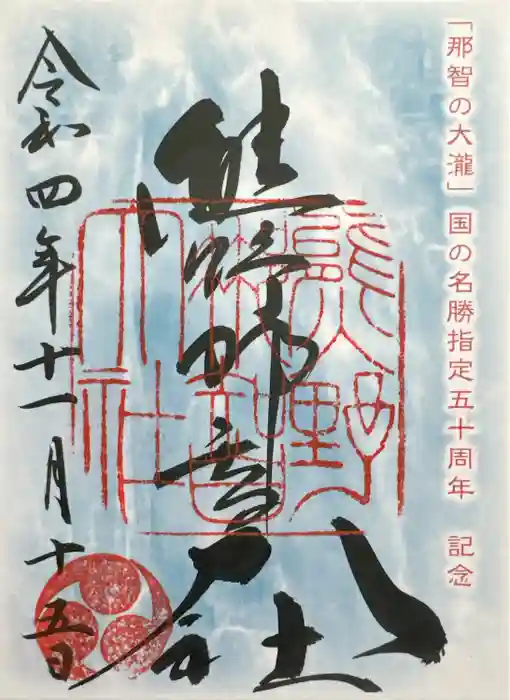 「那智の大瀧」国の名勝指定五十周年 記念
熊野那智大社
熊野
那智
大社
令和四年十一月十五日